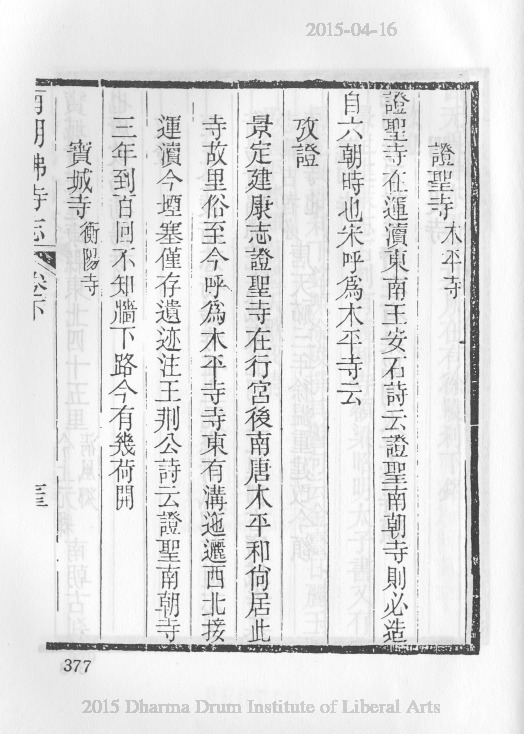 2015-04-16
證聖寺 木平寺
證聖寺在運瀆東南王安石詩云證聖南朝寺則必造
自六朝時也宋呼爲木平寺云
攷證
景定建康志證聖寺在行宮後南唐木平和尙居此
寺故里俗至今呼爲木平寺寺東有溝迤邐西北接
運瀆今堙塞僅存遺迹注王荆公詩云證聖南朝寺
三年到百回不知牆下路今有幾荷開
寶城寺 衡陽寺
南朝佛寺志 卷下
377
2015 Dharma Drum Institute of Liberal Arts